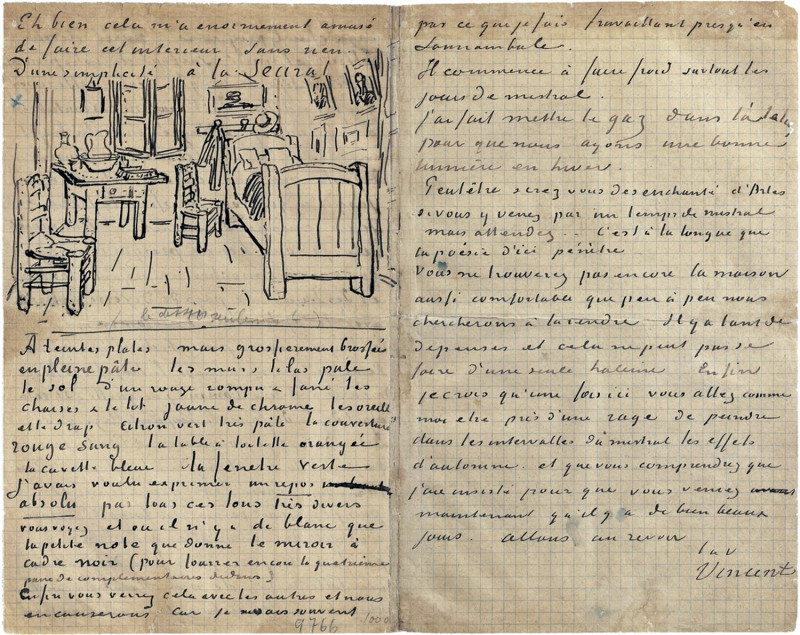 Eh bien cela m'a enormement amusé
de faire cet interieur sans rien
D'une simplicité à la Seurat
le dessin seulement
A teintes plates mais grossierement brossées
en pleine pâte les murs lilas pale
le sol d'un rouge rompu & fané les
chaises & le lit jaune de chrome les oreillers
et le drap citron vert très pâle la couverture
rouge sang la table à toilette orangée
la cuvette bleue la fenetre verte
J'avais voulu exprimer un repos
absolu par tous ces tons très divers
vous voyez et ou il n'y a de blanc que
la petite note que donne le miroir à
cadre noir (pour fourrer encore la quatrième
paire de complementaires dedans)
Enfin vous verrez cela avec les autres et nous
en causerons car je ne sais souvent
9766
1000
pas ce que je fais travaillant presqu'en
somnambule.
Il commence à faire froid surtout les
jours de mistral.
j'ai fait mettre le gaz dans l'atelier
pour que nous ayons une bonne
lumière en hiver.
Peutêtre serez vous desenchanté d'Arles
si vous y venez par un temps de mistral
mais attendez... C'est à la longue que
la poésie d'ici pénètre
Vous ne trouverez pas encore la maison
aussi comfortable que peu à peu nous
chercherons à la rendre Il y a tant de
depenses et cela ne peut pas se
faire d'une seule haleine Enfin
je crois qu'une fois ici vous allez comme
moi etre pris d'une rage de peindre
dans les intervalles du mistral les effets
d'automne. et que vous comprendrez que
j'aie insisté pour que vous veniez
maintenant qu'il y a de bien beaux
jours. allons au revoir
t. à v.
Vincent